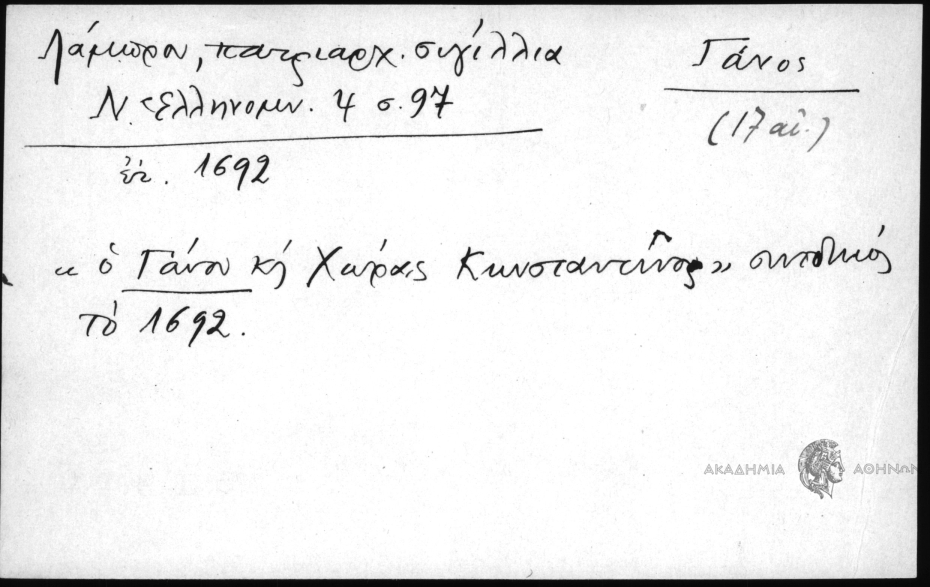 Λάμπρου, πατριαρχ. σιγίλλια
Ν. Ἑλληνομν. 4 σ. 97
Γάνος
(17 αἰ.)
ἔτ. 1692
« ὁ Γάνου κὴ Χώρας Κωνσταντῖνος » συνοδικός
τὸ 1692.
ΑΚΑΔΗΜΙΑ ΑΘΗΝΩΝ